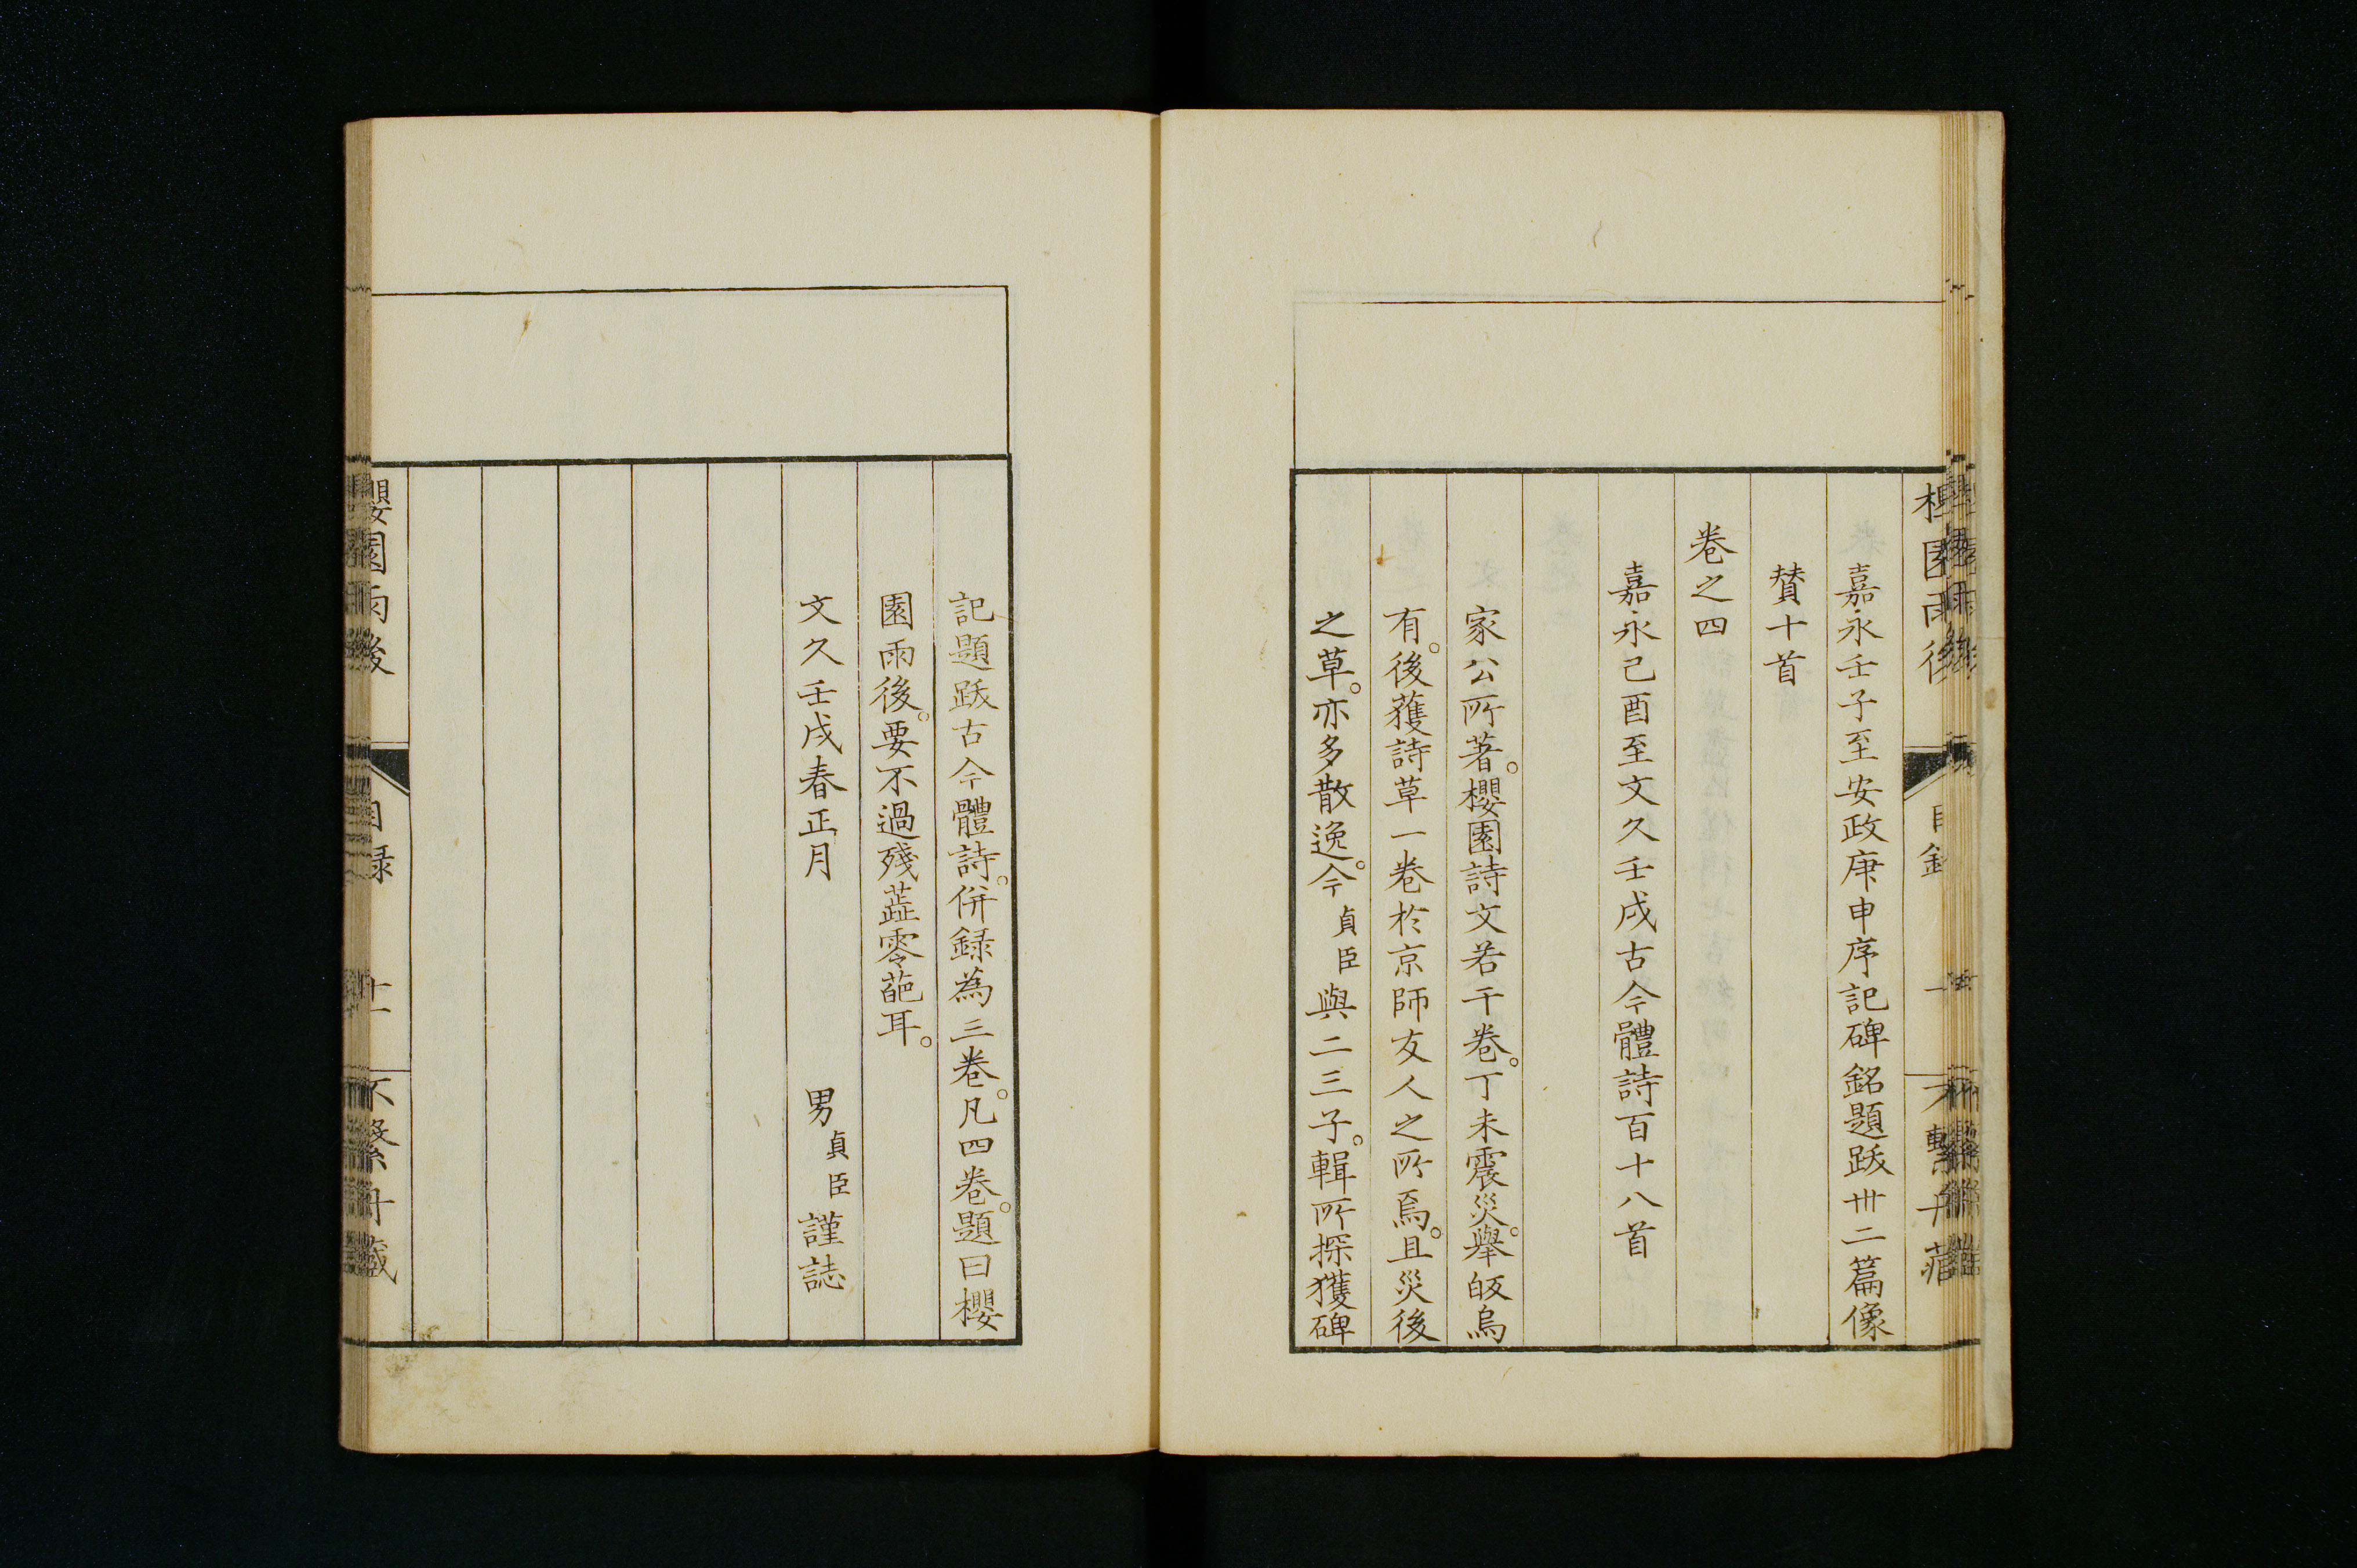 嘉永壬子至安政庚申序記碑銘題跋卅二篇像
賛十首
卷之四
嘉永己酉至文久壬戌古今體詩百十八首
家公所著。櫻園詩文若干卷。丁未震災。擧皈烏
有。後獲詩草一卷於京師友人之所焉。且災後
之草。亦多散逸。今貞臣與二三子。輯所探獲碑
記題跋古今體詩。併録為三卷。凡四卷。題曰櫻
園雨後。要不過殘蕋零葩耳。
文久壬戌春正月 男貞臣謹誌
櫻園雨後 目録 十一 不繫舟藏